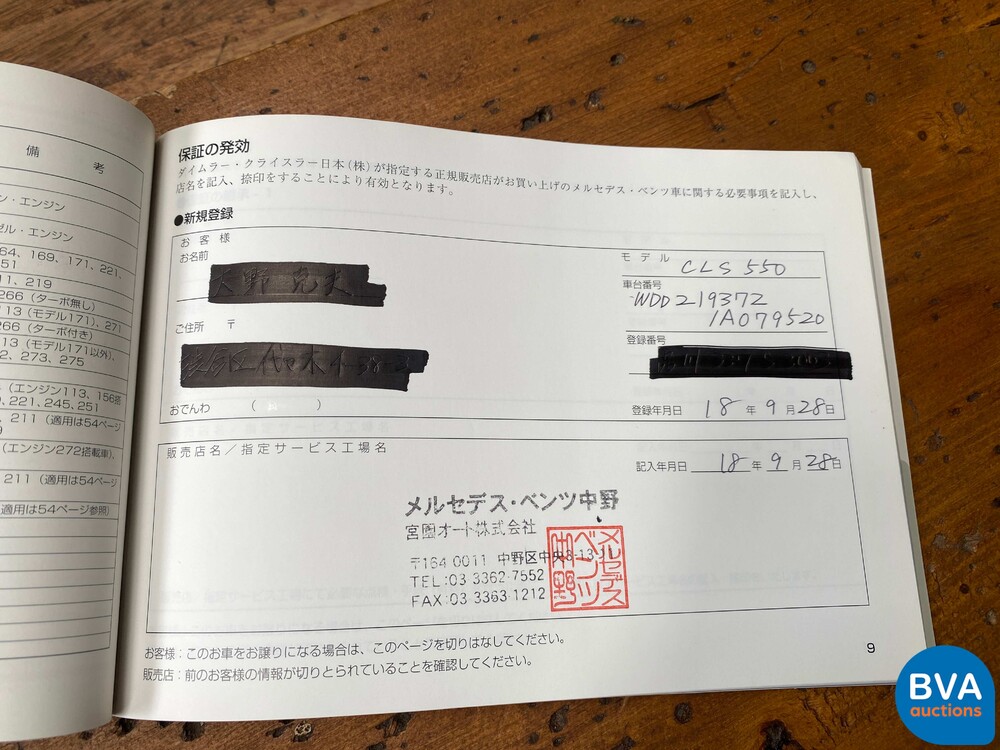 備考
ン・エンジン
ゼル・エンジン
64、169、171、221、
251
11、219
266 (ターボ無し)
13 (モデル171)、271
266 (ターボ付き)
13 (モデル171以外)、
2、273、275
(エンジン113、156搭
0、221、245、251
、211 (適用は54ページ
(エンジン272搭載車)、
211 (適用は54ページ
適用は54ページ参照)
保証の発効
ダイムラー・クライスラー日本(株)が指定する正規販売店がお買い上げのメルセデス・ベンツ車に関する必要事項を記入し、
店名を記入、捺印をすることにより有効となります。
●新規登録
お客様
お名前
ご住所 〒
おでんわ ( )
モデル CLS 550
車台番号
WDD219372
1A079520
登録番号
登録年月日 18 年 9 月 28 日
販売店名/指定サービス工場名
記入年月日 18 年 9 月 28 日
メルセデス・ベンツ中野
宮園オート株式会社
〒164 0011 中野区中央
TEL:03 3362-7552
FAX:03 3363-1212
メルセデス
ベンツ
中野
お客様:このお車をお譲りになる場合は、このページを切りはなしてください。
販売店:前のお客様の情報が切りとられていることを確認してください。
9
BVA
auctions